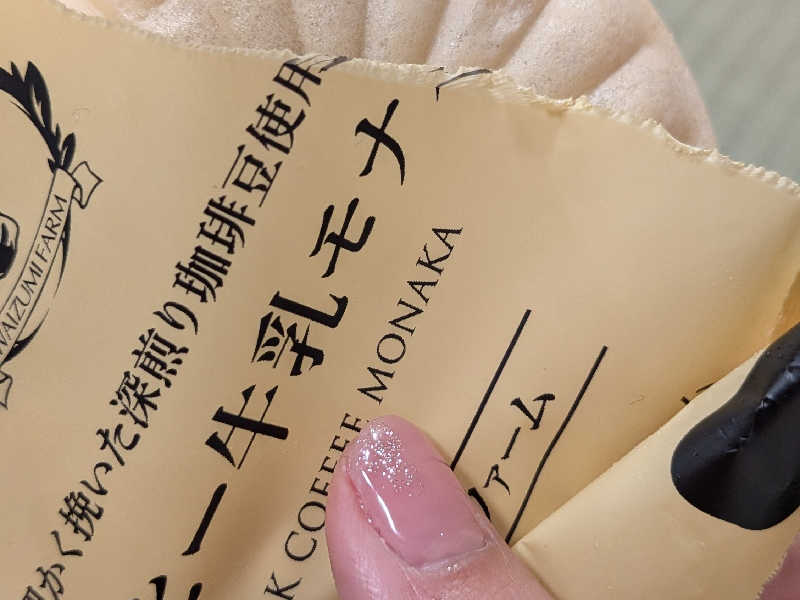 WAIZUMI FARM
かく挽いた深煎り珈琲豆使用
ー牛乳モナ
K COFFEE MONAKA
ァーム